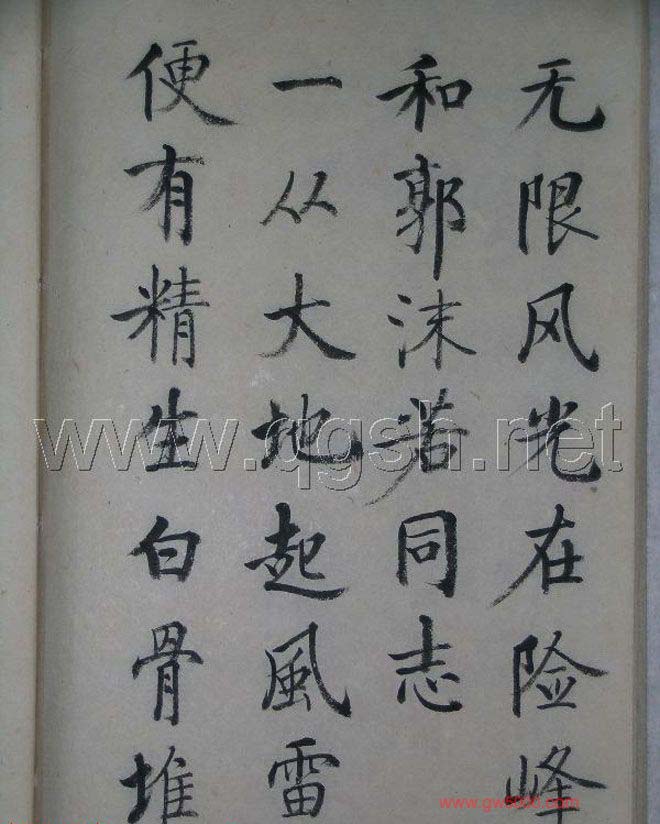 无限风光在险峰
和郭沫若同志
一从大地起風雷
便有精生白骨堆
www.qgsh.net
www.gw5000.com